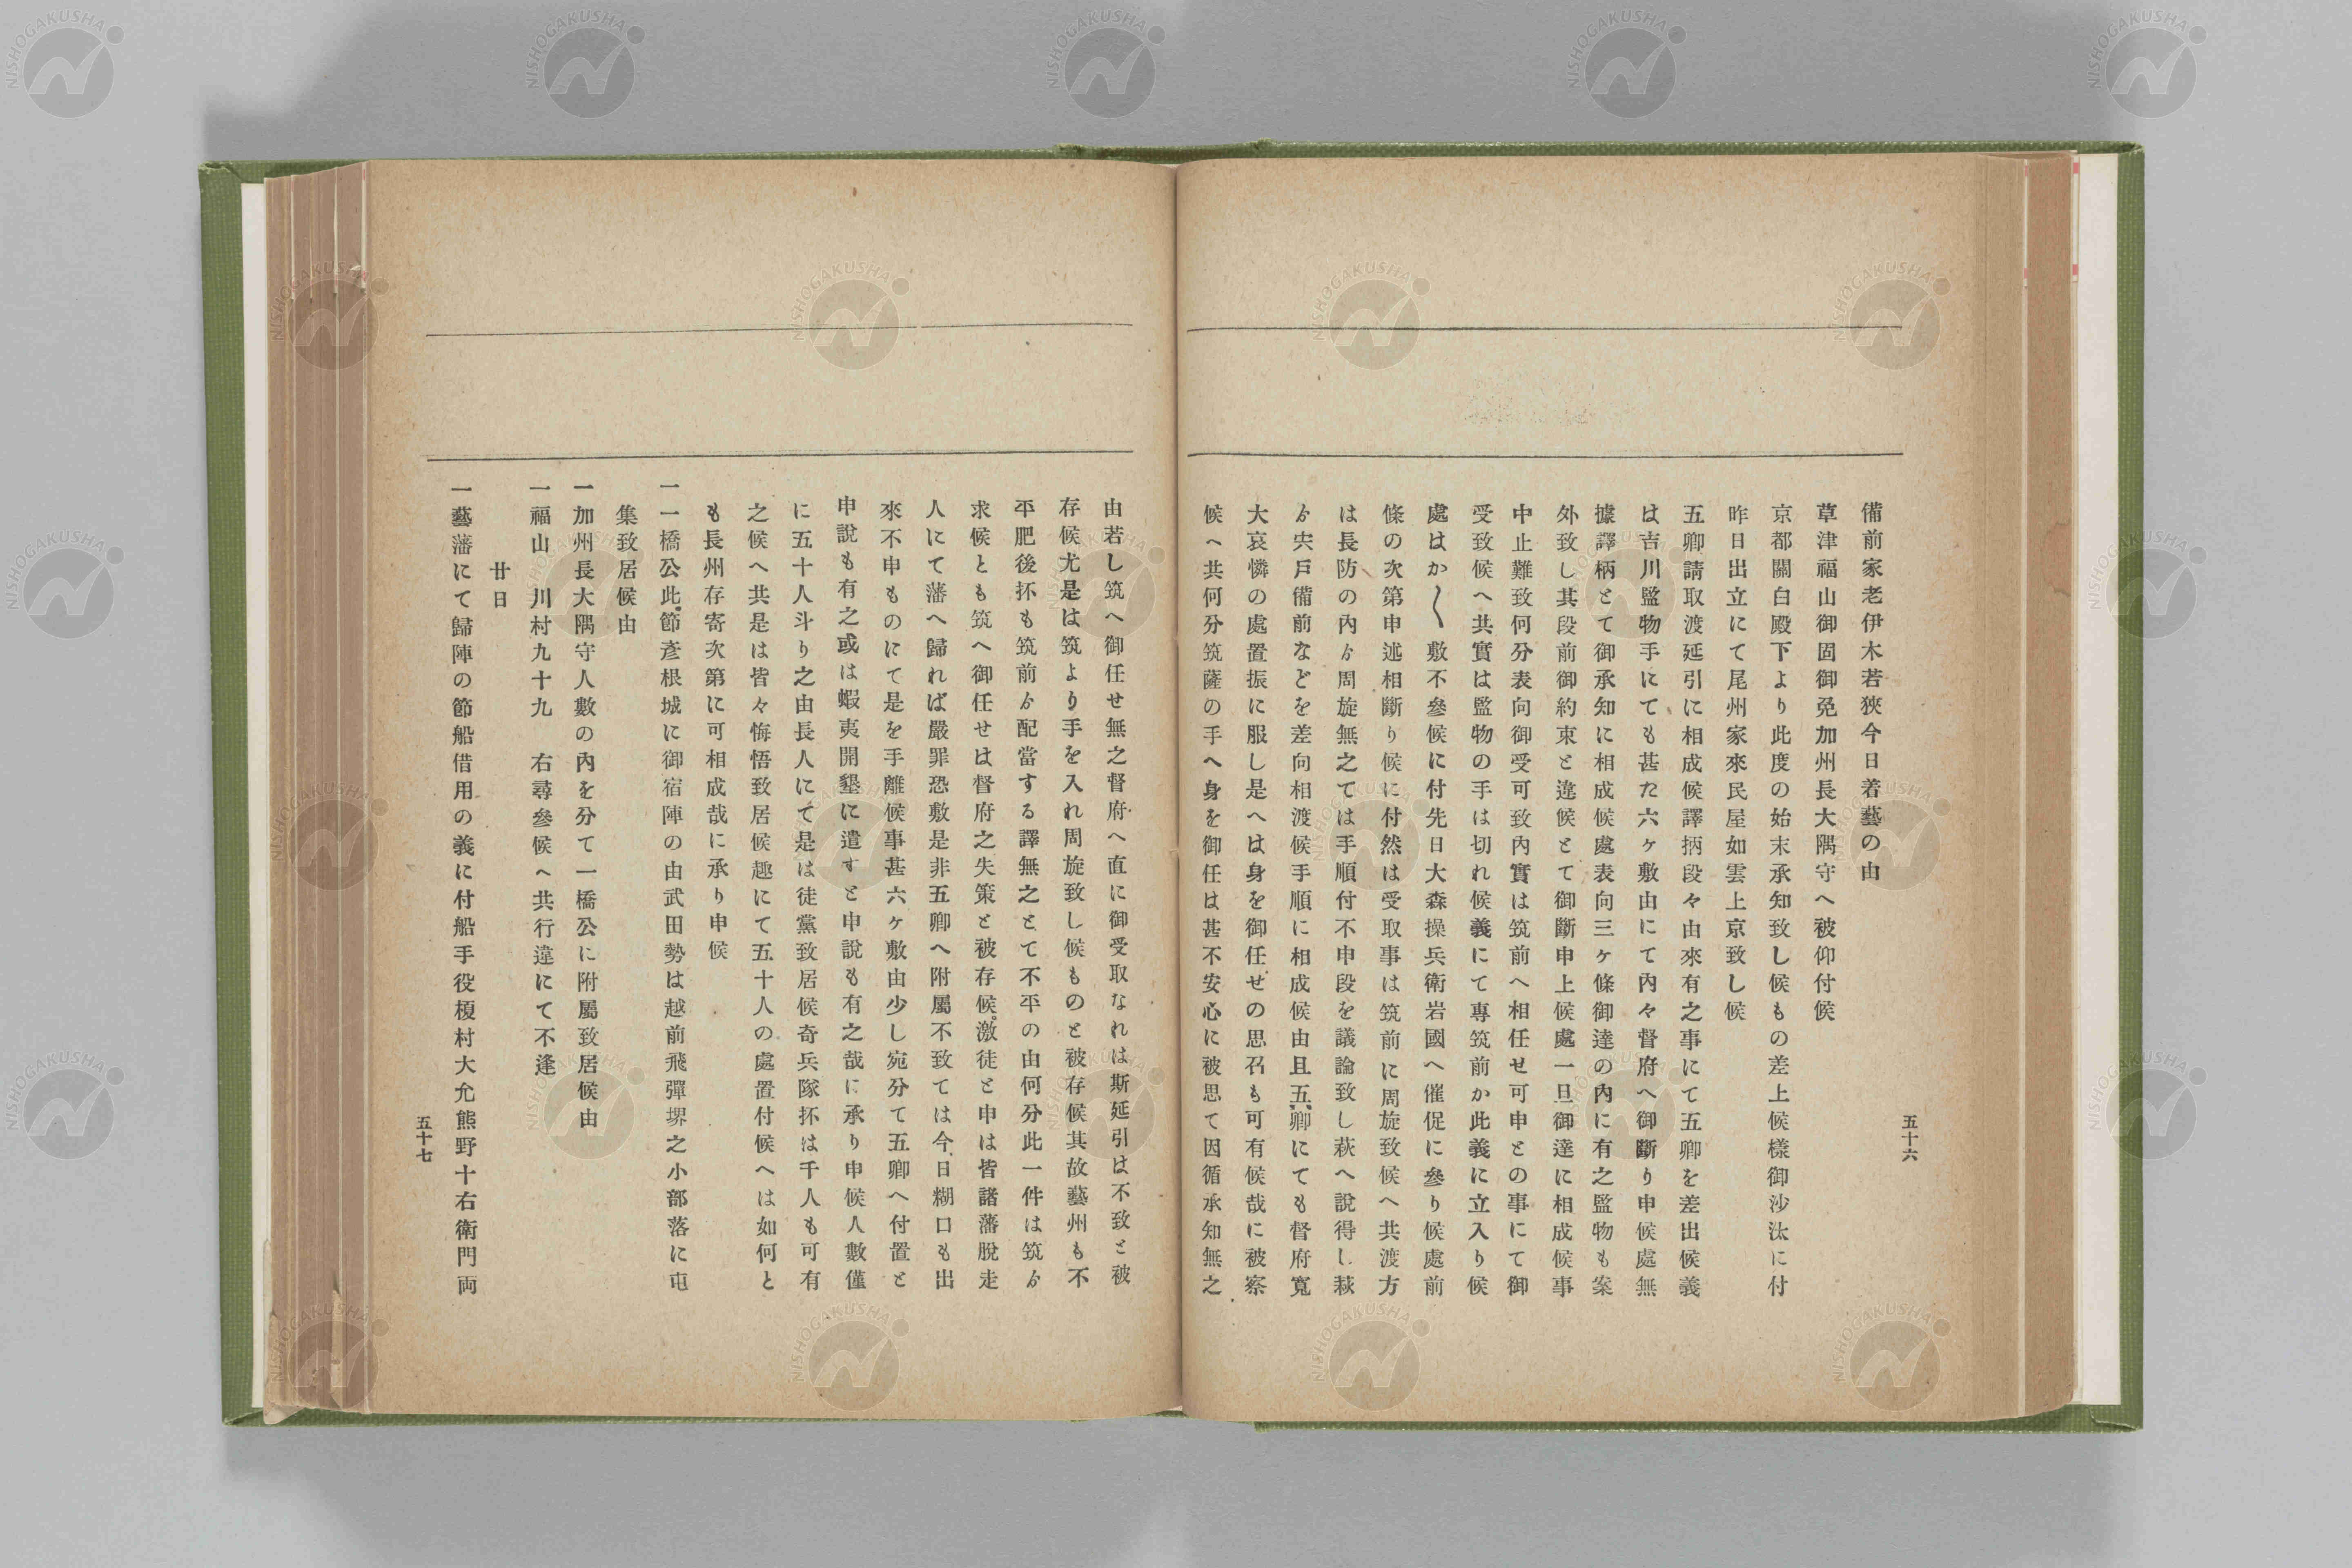 五十六
備前家老伊木若狹今日着藝の由
草津福山御固御免加州長大隅守へ被仰付候
京都關白殿下より此度の始末承知致し候もの差上候樣御沙汰に付
昨日出立にて尾州家來民屋如雲上京致し候
五卿請取渡延引に相成候譯柄段々由來有之事にて五卿を差出候義
は吉川監物手にても甚た六ヶ敷由にて內々督府へ御斷り申候處無
據譯柄とて御承知に相成候處表向三ヶ條御達の內に有之監物も案
外致し其段前御約束と違候とて御斷申上候處一旦御達に相成候事
中止難致何分表向御受可致內實は筑前へ相任せ可申との事にて御
受致候へ共實は監物の手は切れ候義にて專筑前か此義に立入り候
處はか〱敷不參候に付先日大森操兵衛岩國へ催促に參り候處前
條の次第申述相斷り候に付然は受取事は筑前に周旋致候へ共渡方
は長防の內ゟ周旋無之ては手順付不申段を議論致し萩へ說得し萩
ゟ宍戶備前などを差向相渡候手順に相成候由且五卿にても督府寬
大哀憐の處置振に服し是へは身を御任せの思召も可有候哉に被察
候へ共何分筑薩の手へ身を御任は甚不安心に被思て因循承知無之
由若し筑へ御任せ無之督府へ直に御受取なれは斯延引は不致と被
存候尤是は筑より手を入れ周旋致し候ものと被存候其故藝州も不
平肥後抔も筑前ゟ配當する譯無之とて不平の由何分此一件は筑ゟ
求候とも筑へ御任せは督府之失策と被存候激徒と申は皆諸藩脫走
人にて藩へ歸れば嚴罪恐敷是非五卿へ附屬不致ては今日糊口も出
來不申ものにて是を手離候事甚六ヶ敷由少し宛分て五卿へ付置と
申說も有之或は蝦夷開墾に遣すと申說も有之哉に承り申候人數僅
に五十人斗り之由長人にて是は徒黨致居候奇兵隊抔は千人も可有
之候へ共是は皆々悔悟致居候趣にて五十人の處置付候へは如何と
も長州存寄次第に可相成哉に承り申候
一一橋公此節彥根城に御宿陣の由武田勢は越前飛彈堺之小部落に屯
集致居候由
一加州長大隅守人數の內を分て一橋公に附屬致居候由
一福山　川村九十九　右尋參候へ共行違にて不逢
廿日
一藝藩にて歸陣の節船借用の義に付船手役榎村大允熊野十右衛門両
五十七